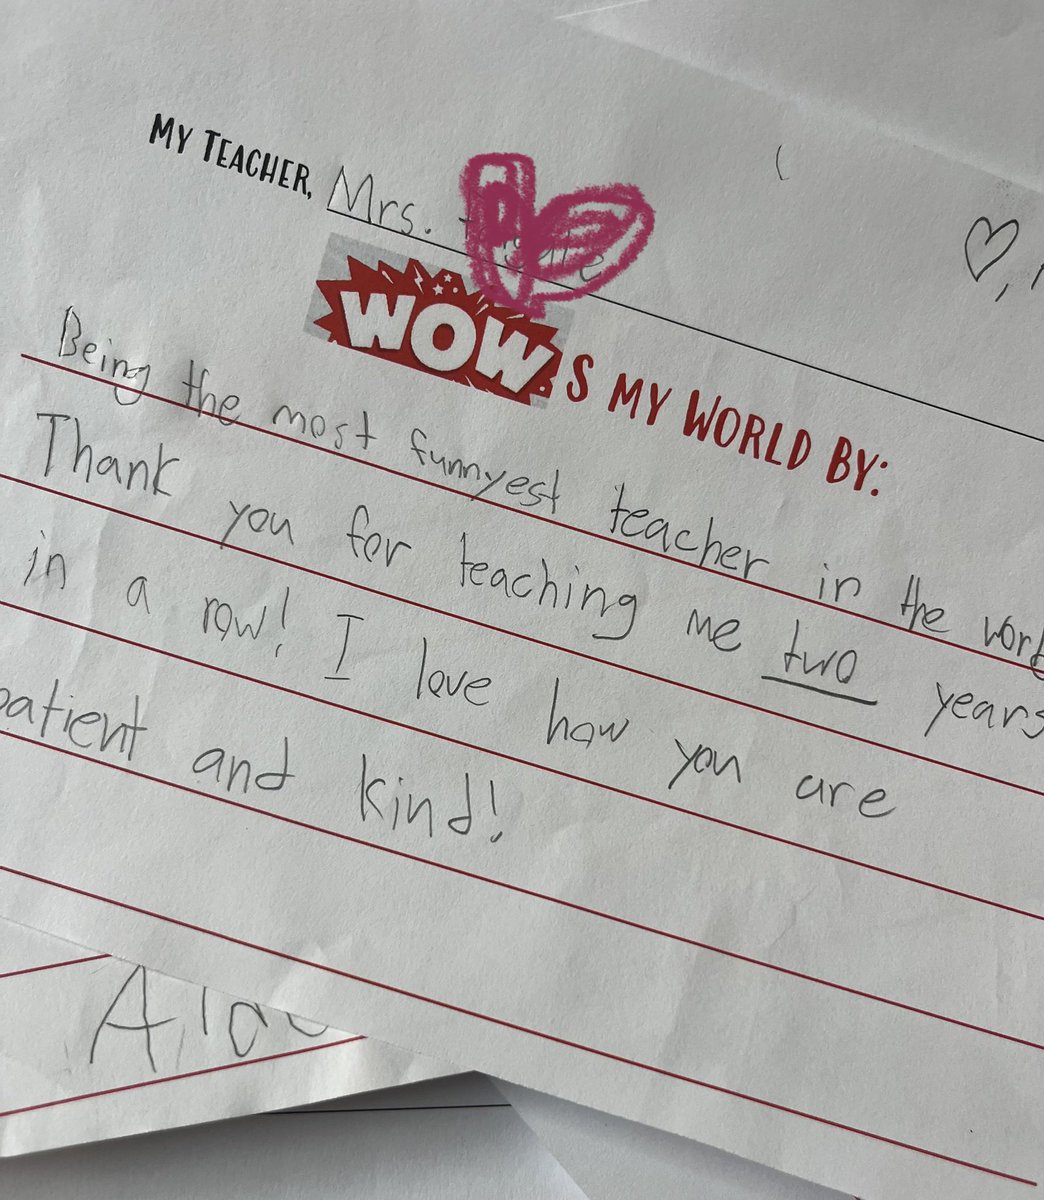 MY TEACHER, Mrs.
WOW S MY WORLD BY:
Being the most funnyest teacher in the
Thank you for teaching me two years
in a row! I love how you are
patient and kind!